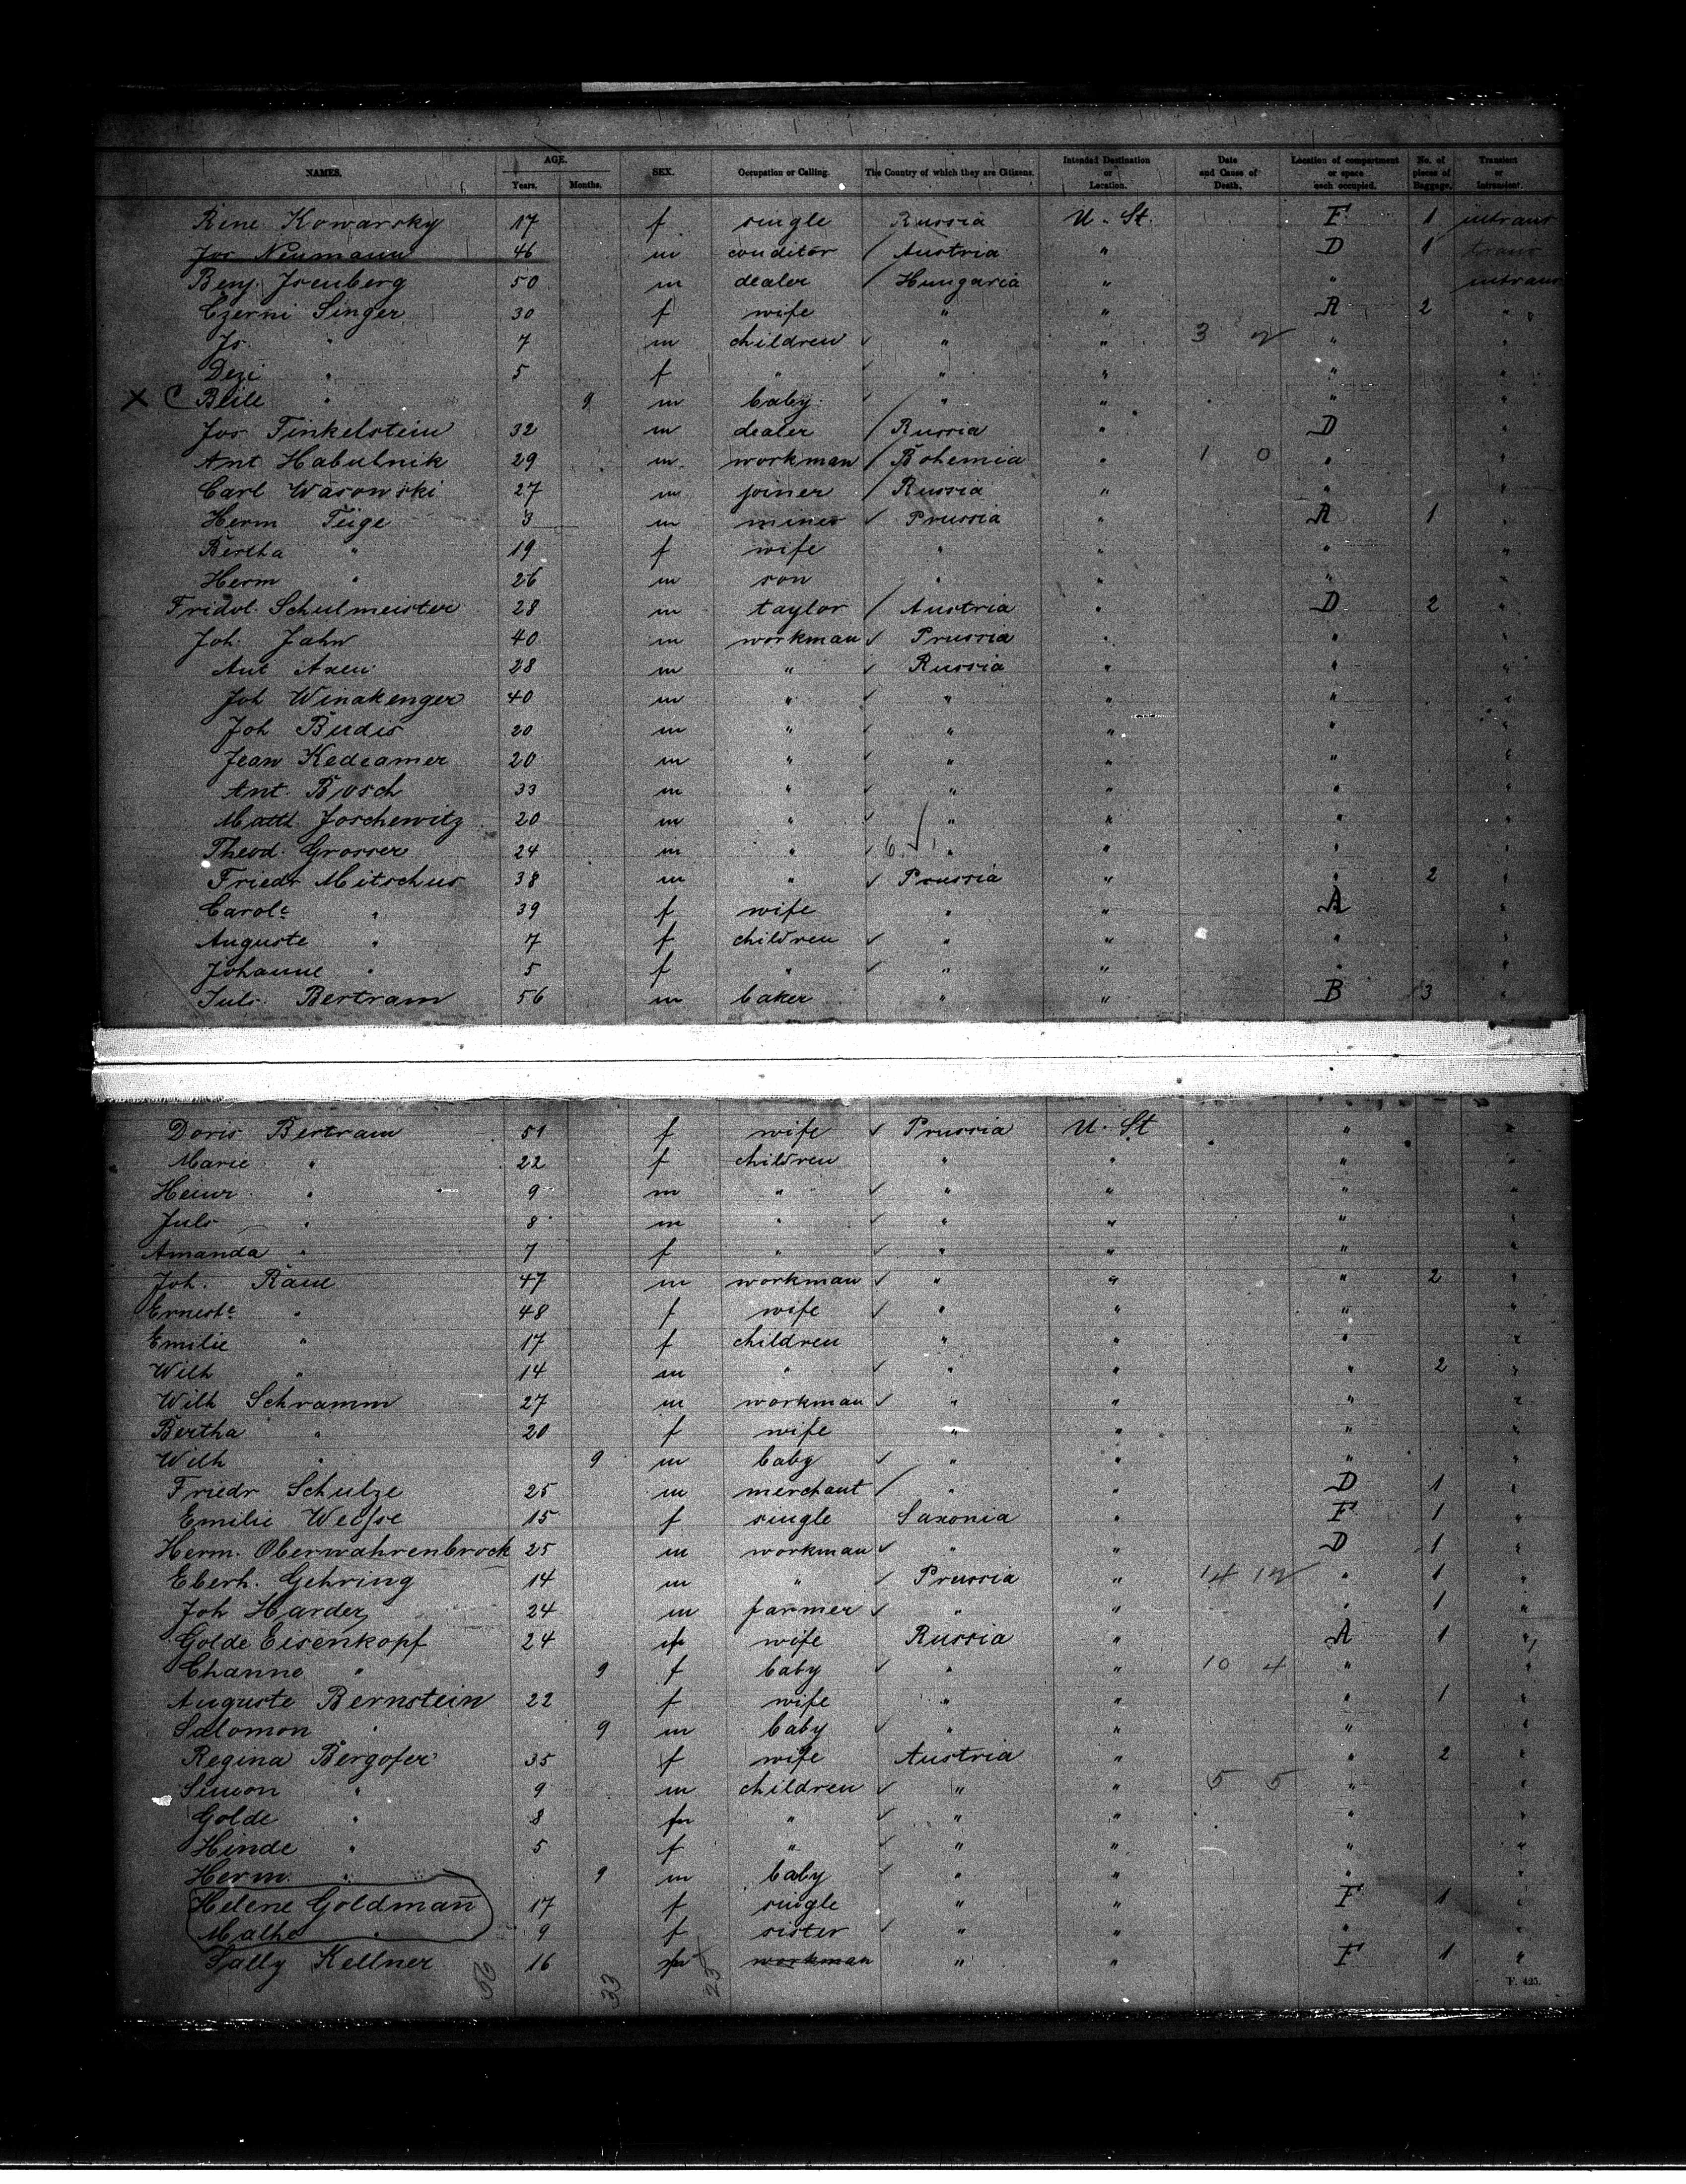 NAMES. AGE. Years. Months. SEX. Occupation or Calling. The Country of which they are Citizens. Intended Destination or Location. Date and Cause of Death. Location of compartment or space each occupied. No. of pieces of Baggage. Transient or Intransient.
Rine Kowarsky 17 f single Russia U. St. F 1 intrans
Jos Neumann 46 m conditor / Austria " D 1 trans
Benj. Isenberg 50 m dealer / Hungaria " " intrans
Czerni Singer 30 f wife " " A 2 "
Js. " 7 m children ✓ " " 3 "
Dezi " 5 f " ✓ " " " "
X C " 9 m baby ✓ " " " "
Jos Finkelstein 32 m dealer / Russia " D "
Ant Habulnik 29 m workman / Bohemia " 1 0 " "
Carl Wasowski 27 m joiner / Russia " " "
Herm Teige 3 m miner ✓ Prussia " A 1 "
Bertha " 19 f wife " " " "
Herm " 26 m son " " " "
Fridol. Schulmeister 28 m taylor / Austria " D 2 "
Joh. Jahn 40 m workman ✓ Prussia " " "
Ant Axen 28 m " ✓ Russia " " "
Joh Winakenger 40 m " ✓ " " " "
Joh Budis 20 m " ✓ " " " "
Jean Kedeamer 20 m " ✓ " " " "
Ant. Bosch 33 m " ✓ " " " "
Math Joschewitz 20 m " ✓ " " " "
Theod. Grosser 24 m " ✓ 6 " " " "
Friedr Mitschus 38 m " ✓ Prussia " " 2 "
Carole " 39 f wife " " A "
Auguste " 7 f children ✓ " " " "
Johanne " 5 f " ✓ " " " "
Juls. Bertram 56 m baker " " B 3 "
Doris Bertram 51 f wife ✓ Prussia U. St " "
Marie " 22 f children " " " "
Heinr " 9 m " ✓ " " " "
Juls " 8 m " ✓ " " " "
Amanda " 7 f " ✓ " " " "
Joh. Raue 47 m workman ✓ " " " 2 "
Erneste " 48 f wife ✓ " " " "
Emilie " 17 f children " " " "
Wilh " 14 m " ✓ " " " 2 "
Wilh Schramm 27 m workman ✓ " " " "
Bertha " 20 f wife " " " "
Wilh " 9 m baby ✓ " " " "
Friedr Schulze 25 m merchant / " " D 1 "
Emilie Weisse 15 f single Saxonia " F 1 "
Herm. Oberwahrenbrock 25 m workman ✓ " " D 1 "
Eberh. Gehring 14 m " ✓ Prussia " 14 12 " 1 "
Joh Harder 24 m farmer ✓ " " " 1 "
Golde Eisenkopf 24 f wife Russia " A 1 "
Channe " 9 f baby ✓ " " 10 4 " "
Auguste Bernstein 22 f wife " " " 1 "
Salomon " 9 m baby ✓ " " " "
Regina Bergofer 35 f wife Austria " " 2 "
Simon " 9 m children ✓ " " 5 5 " "
Golde " 8 f " ✓ " " " "
Hinde " 5 f " ✓ " " " "
Herm. " 9 m baby ✓ " " " "
Helene Goldman̄ 17 f single " " F 1 "
Malke " 9 f sister ✓ " " " "
Sally Kellner 16 f workman " " F 1 "
56 33 23
F. 425.